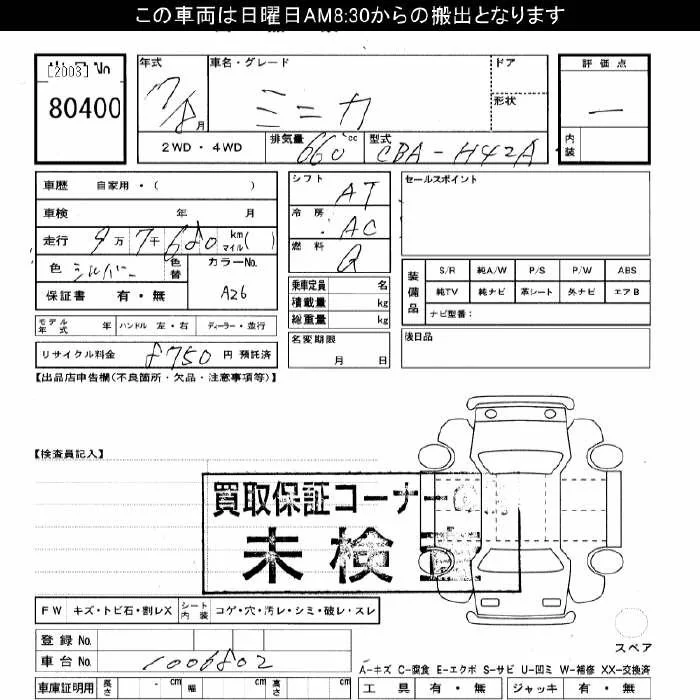 この車両は日曜日AM8:30からの搬出となります
[2003] No
80400
年式
17/8月
車名・グレード
ミニカ
ドア
形状
評価点
—
内装
2WD・4WD
排気量 660 cc
型式 CBA-H42A
車歴 自家用・( )
車検 年 月
走行 9万7千680 km マイル( )
色 シルバー 色替
カラーNo. A26
保証書 有・無
シフト AT
冷房 AC
燃料 G
乗車定員 名
積載量 kg
総重量 kg
名変期限
月 日
セールスポイント
装備品
S/R 純A/W P/S P/W ABS
純TV 純ナビ 革シート 外ナビ エアB
ナビ型番:
後日品
モデル年式 年 ハンドル 左・右 ディーラー・並行
リサイクル料金 8750 円 預託済
【出品店申告欄(不良箇所・欠品・注意事項等)】
【検査員記入】
買取保証コーナー
未検
FW キズ・トビ石・割レX シート内装 コゲ・穴・汚レ・シミ・破レ・スレ
登録No.
車台No. 1006802
車庫証明用 長さ cm 幅 cm 高さ cm
スペア
A-キズ C-腐食 E-エクボ S-サビ U-凹ミ W-補修 XX-交換済
工具 有・無 ジャッキ 有・無